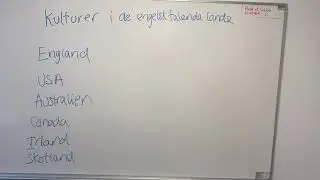 Kulturer i de engelsktalende lande
England
USA
Australien
Canada
Irland
Skotland